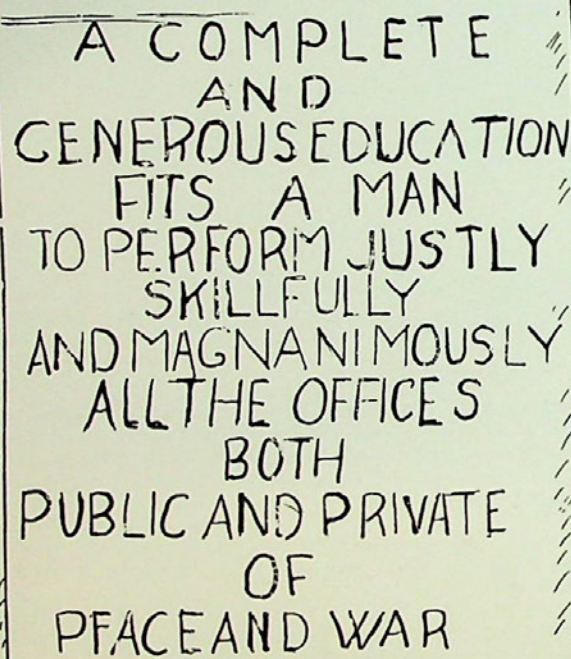 A COMPLETE
AND
GENEROUS EDUCATION
FITS A MAN
TO PERFORM JUSTLY
SKILLFULLY
AND MAGNANIMOUSLY
ALL THE OFFICES
BOTH
PUBLIC AND PRIVATE
OF
PEACE AND WAR